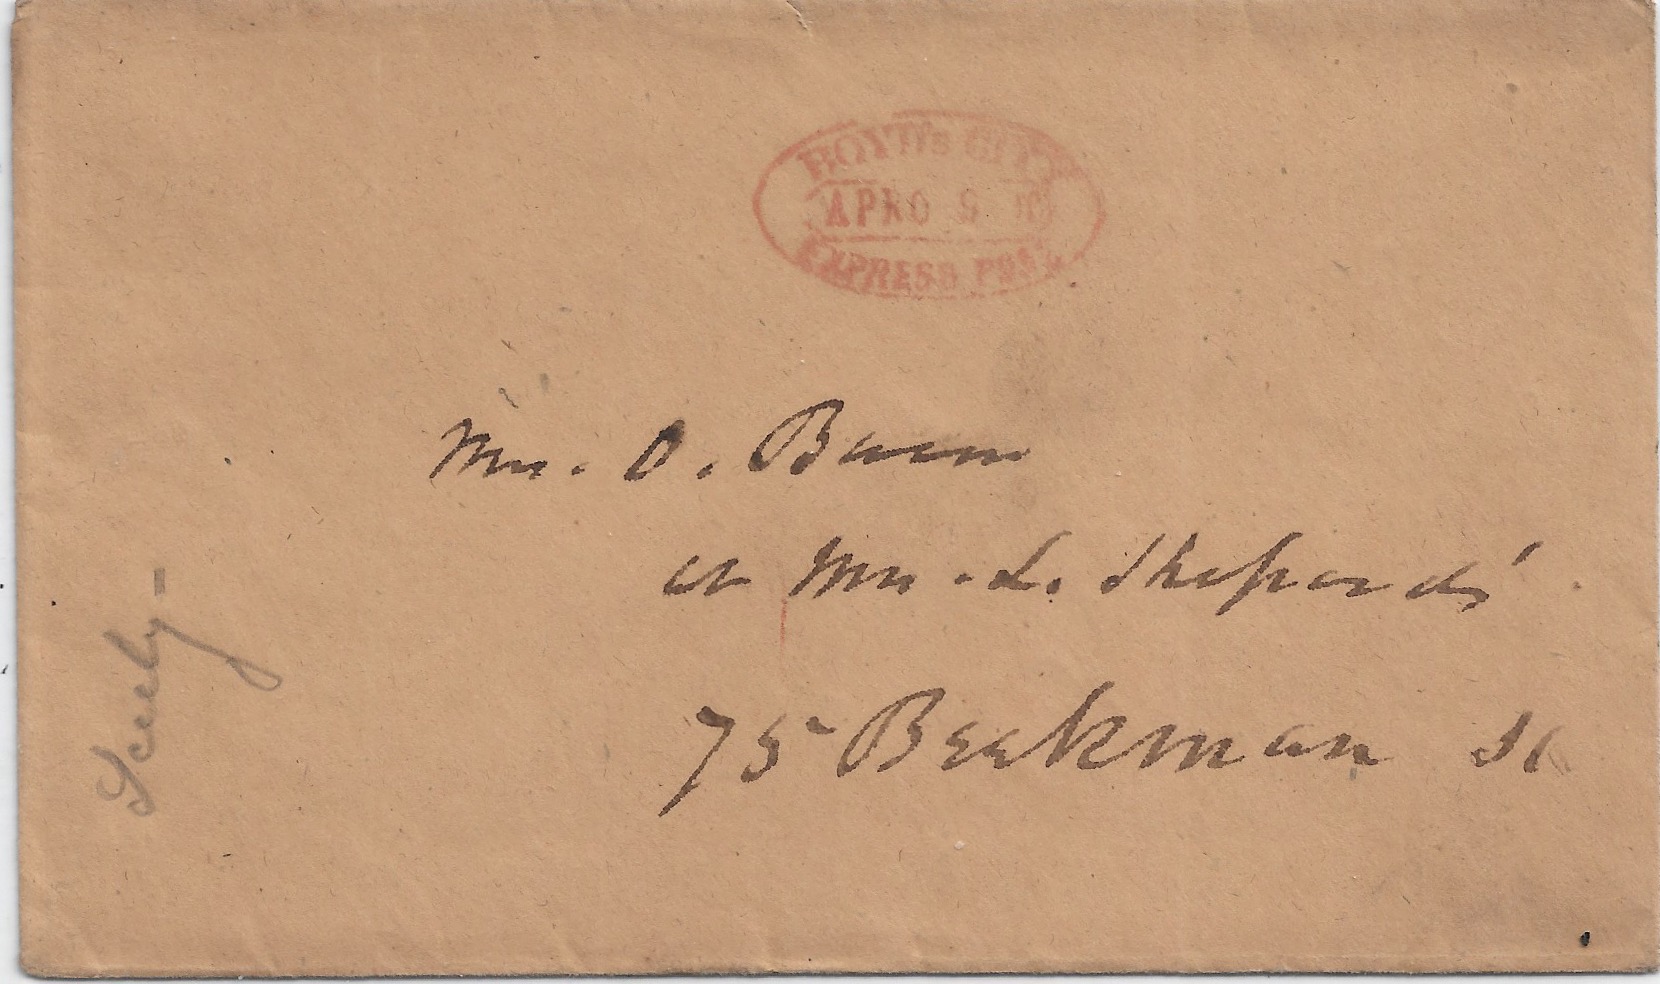 BOYD'S CITY
APR
EXPRESS POST
Mr. O.
at Mr. L. Shepards'
75 Beekman St
Seely -